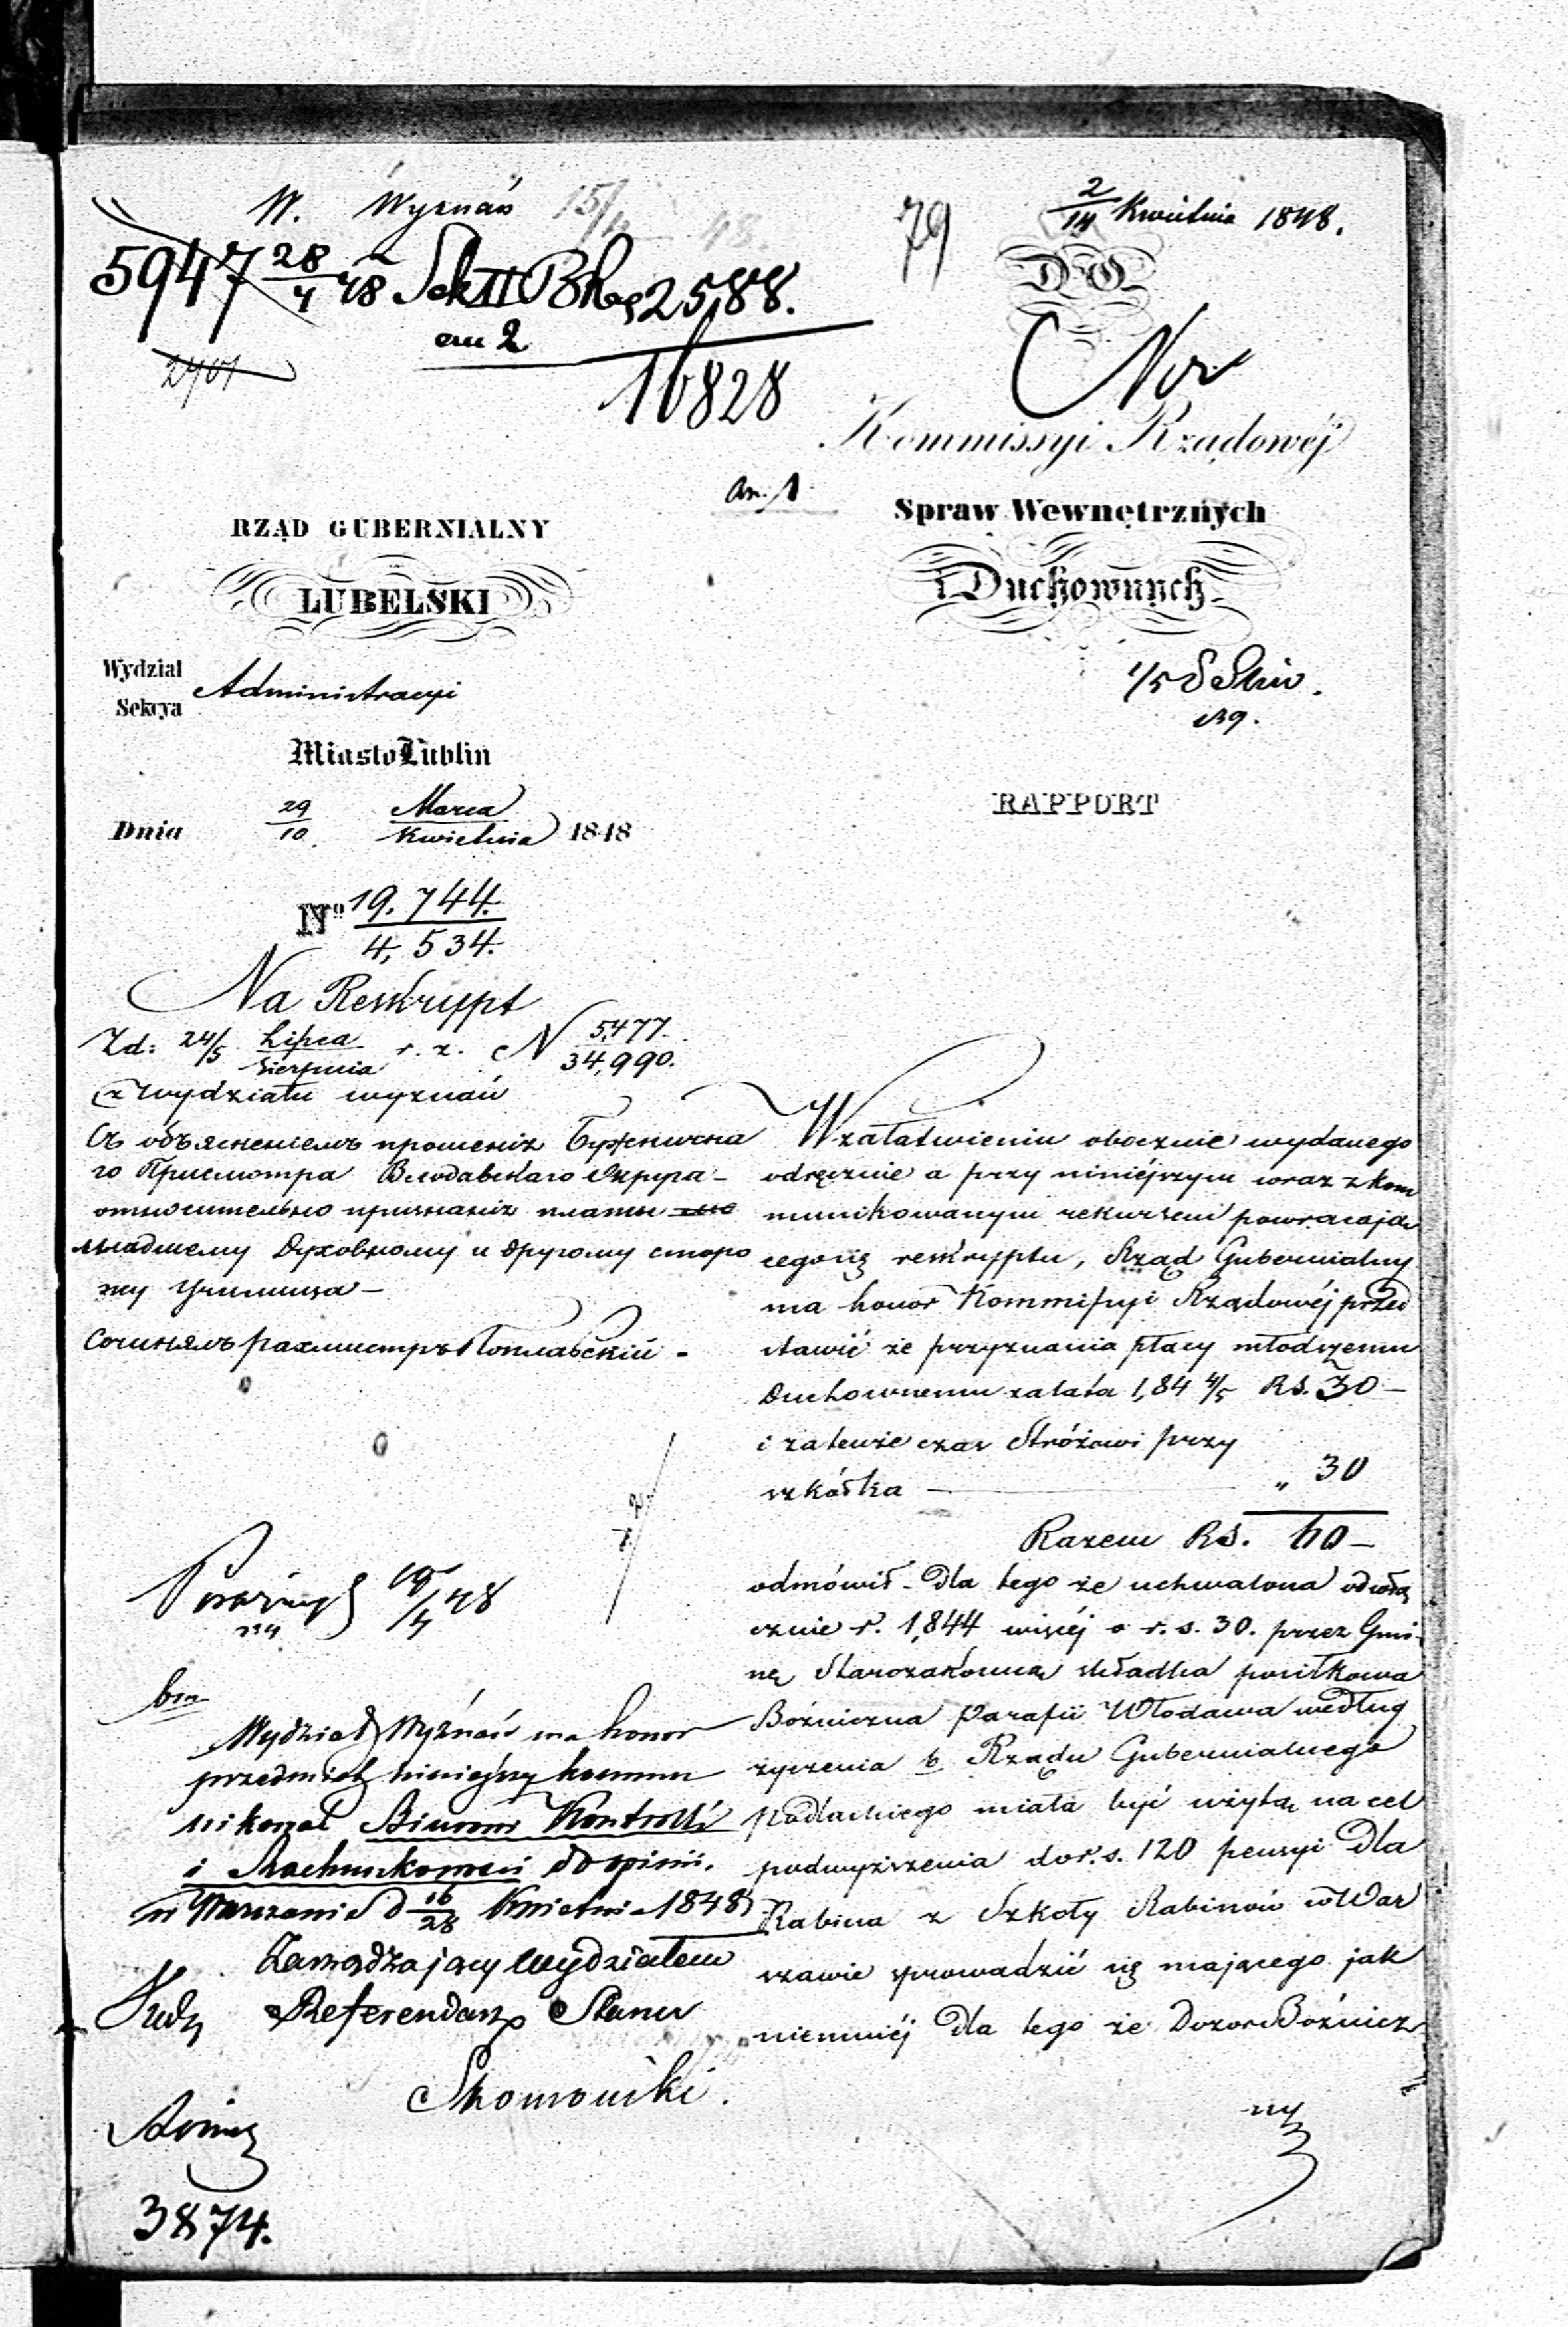 W. Wyznań 15/4 48.
79
2/14 Kwietnia 1848.
5947 28/4 48 Sek II 2588.
an 2
2401
16828
DO
Kommissyi Rządowéj
an. 1
Spraw Wewnętrznych
i Duchownych
RZĄD GUBERNIALNY
LUBELSKI
Wydział Administracyi
Sekcya
Miasto Lublin
Dnia 29/10 Marca/Kwietnia 1848
RAPPORT
No 19,744/4,534.
Na Reskrypt
Zd: 24/5 Lipca/Sierpnia r. z. N 5,477/34,990.
z Wydziału wyznań
Съ объясненіемъ прошенія Бужнична
го Присмотра Влодавскаго Округа
относительно признанія платы
младшему Духовному и другому сторо
жу училища
Сочинялъ рахмистръ Поплавскій.
W załatwieniu obocznie wydanego
odręcznie a przy niniéjszym wraz z kom
munikowanym rekursem powracają
cego się reskryptu, Rząd Gubernialny
ma honor Kommissyi Rządowéj przed
stawić że przyznania płacy młodszemu
Duchownemu za lata 1,84 4/5 RS. 30 –
i za tenże czas Stróżowi przy
szkółka — „ 30
Razem RS. 60 –
odmówił – dla tego że uchwalona od włą
cznie r. 1,844 więcéj o r. s. 30. przez Gmi-
nę Starozakonną składka posiłkowa
Bóżniczna Parafii Włodawa według
życzenia b. Rządu Gubernialnego
Podlaskiego miała być użytą na cel
podwyższenia do r. s. 120 pensyi dla
Rabina z Szkoły Rabinów w War
szawie sprowadzić się mającego jak
niemniéj dla tego że Dozor Bóżnicz
ny
19/4 48
Wydział Wyznań ma honor
przedmiot niniejszy kommu
nikować Biurowi Kontrolli
i Rachunkowości do opinii.
w Warszawie d 16/28 Kwietnia 1848
Zarządzający Wydziałem
Referendarz Stanu
3874.